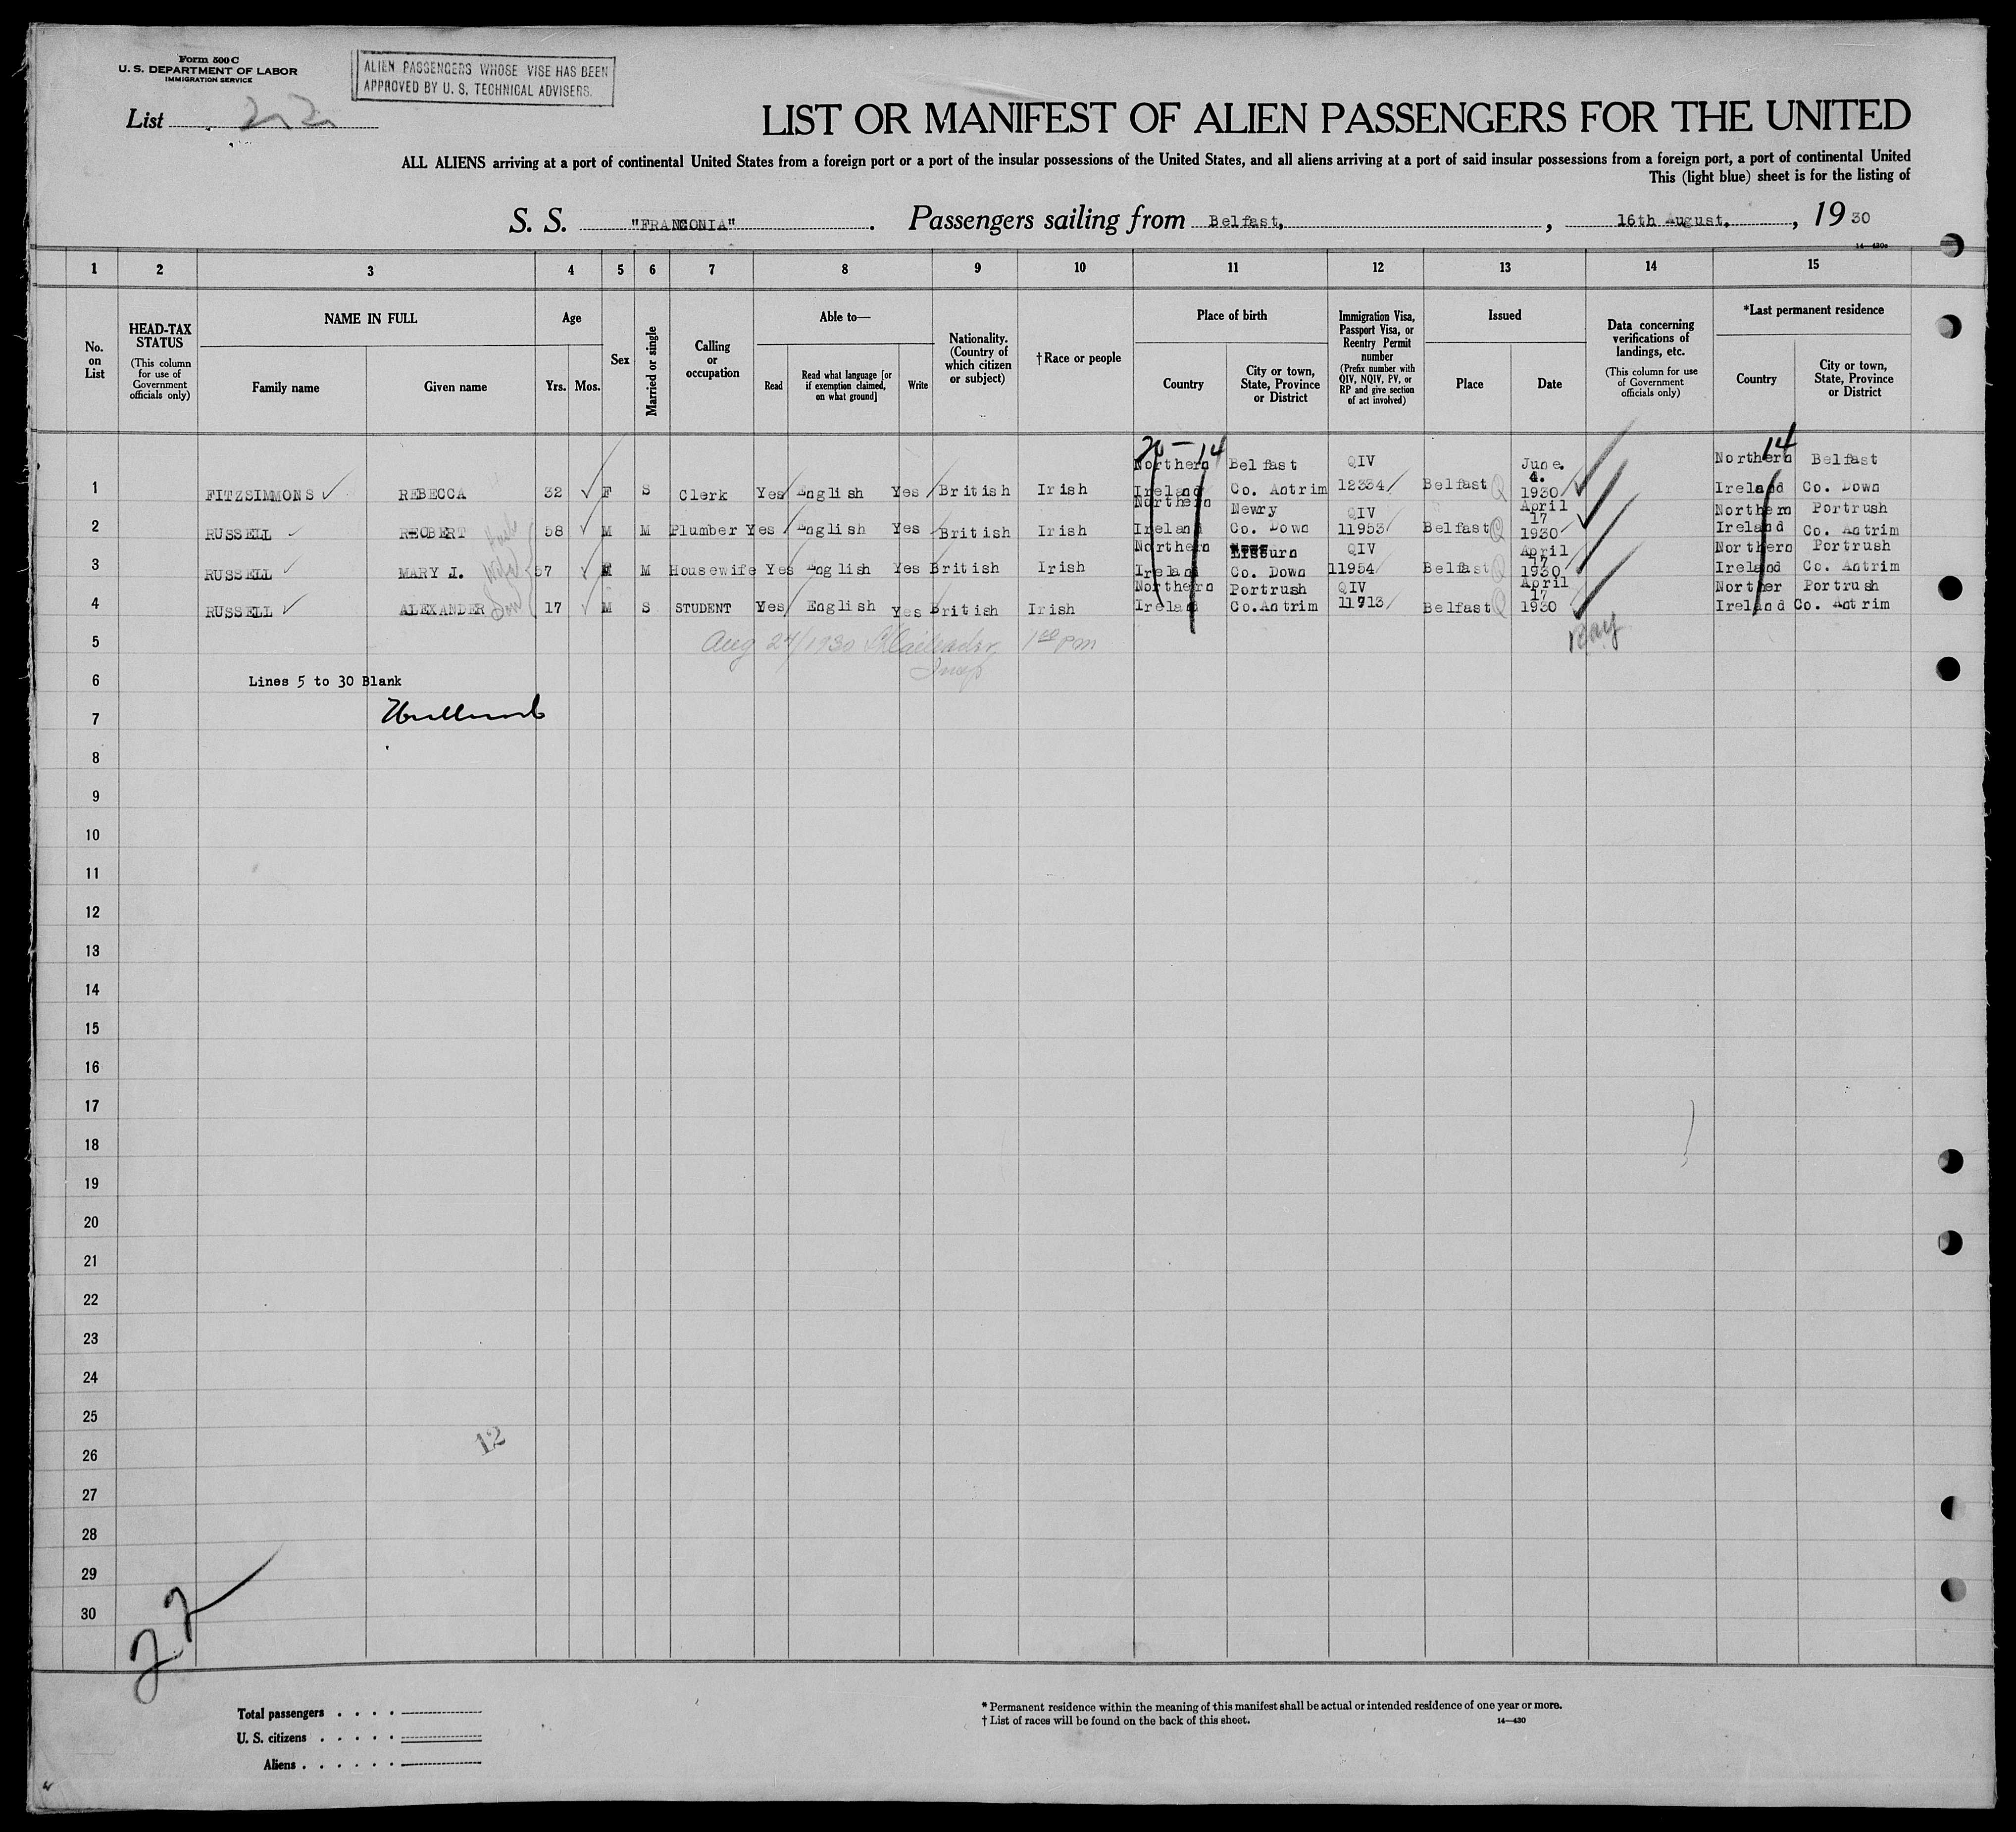 Form 500 C
U. S. DEPARTMENT OF LABOR
IMMIGRATION SERVICE
ALIEN PASSENGERS WHOSE VISE HAS BEEN
APPROVED BY U. S. TECHNICAL ADVISERS.
List 22
LIST OR MANIFEST OF ALIEN PASSENGERS FOR THE UNITED
ALL ALIENS arriving at a port of continental United States from a foreign port or a port of the insular possessions of the United States, and all aliens arriving at a port of said insular possessions from a foreign port, a port of continental United
This (light blue) sheet is for the listing of
S. S. "FRANCONIA". Passengers sailing from Belfast, , 16th August, , 19 30
14—430a
1 2 3 4 5 6 7 8 9 10 11 12 13 14 15
No. on List
HEAD-TAX STATUS (This column for use of Government officials only)
NAME IN FULL
Family name
Given name
Age
Yrs.
Mos.
Sex
Married or single
Calling or occupation
Able to—
Read
Read what language [or if exemption claimed, on what ground]
Write
Nationality. (Country of which citizen or subject)
†Race or people
Place of birth
Country
City or town, State, Province or District
Immigration Visa, Passport Visa, or Reentry Permit number (Prefix number with QIV, NQIV, PV, or RP and give section of act involved)
Issued
Place
Date
Data concerning verifications of landings, etc. (This column for use of Government officials only)
*Last permanent residence
Country
City or town, State, Province or District
14 14
1 FITZSIMMONS REBECCA 32 F S Clerk Yes English Yes British Irish Northern Ireland Belfast Co. Antrim QIV 12334 Belfast June. 4. 1930 Northern Ireland Belfast Co. Down
2 RUSSELL ROBERT Husb 58 M M Plumber Yes English Yes British Irish Northern Ireland Newry Co. Down QIV 11953 Belfast April 17 1930 Northern Ireland Portrush Co. Antrim
3 RUSSELL MARY J. Wife 57 F M Housewife Yes English Yes British Irish Northern Ireland Lisburn Co. Down QIV 11954 Belfast April 17 1930 Northern Ireland Portrush Co. Antrim
4 RUSSELL ALEXANDER Son 17 M S STUDENT Yes English Yes British Irish Northern Ireland Portrush Co.Antrim QIV 11913 Belfast April 17 1930 Norther Ireland Portrush Co. Antrim
5 Aug 24/1930 1 00 pm
Insp
6 Lines 5 to 30 Blank
7
8
9
10
11
12
13
14
15
16
17
18
19
20
21
22
23
24
25
12
26
27
28
29
30
22
Total passengers
U. S. citizens
Aliens
* Permanent residence within the meaning of this manifest shall be actual or intended residence of one year or more.
† List of races will be found on the back of this sheet.
14—430